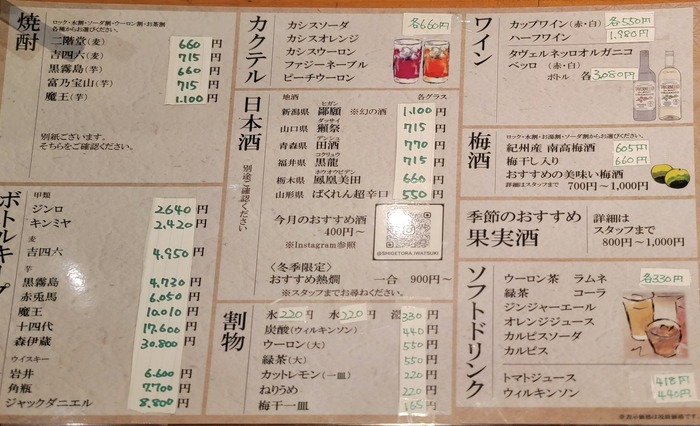 焼酎
ロック・水割・ソーダ割・ウーロン割・お茶割
各種からお選びください。
二階堂(麦) 660円
吉四六(麦) 715円
黒霧島(芋) 660円
富乃宝山(芋) 715円
魔王(芋) 1.100円
別紙ございます。
そちらをご確認ください。
ボトルキープ
甲類
ジンロ 2640円
キンミヤ 2.420円
麦
吉四六 4.950円
芋
黒霧島 4.730円
赤兎馬 6.050円
魔王 10.010円
十四代 17.600円
森伊蔵 30.800円
ウイスキー
岩井 6.600円
角瓶 7.700円
ジャックダニエル 8.800円
カクテル
カシスソーダ 各660円
カシスオレンジ
カシスウーロン
ファジーネーブル
ピーチウーロン
日本酒
別途ご確認ください
地酒 各グラス
新潟県 鄙願 ヒガン ※幻の酒 1.100円
山口県 獺祭 ダッサイ 715円
青森県 田酒 デンシュ 770円
福井県 黒龍 コクリュウ 715円
栃木県 鳳凰美田 ホウオウビデン 660円
山形県 ばくれん超辛口 550円
今月のおすすめ酒
400円～
※Instagram参照
@SHIGETORA.IWATSUKI
〈冬季限定〉
おすすめ熱燗 一合 900円～
※スタッフまでお尋ねください。
割物
氷220円 水220円 330円
炭酸(ウィルキンソン) 440円
ウーロン(大) 550円
緑茶(大) 550円
カットレモン(一皿) 220円
ねりうめ 220円
梅干一皿 165円
ワイン
カップワイン(赤・白) 各550円
ハーフワイン 1.980円
タヴェルネッロオルガニコ
ベッロ (赤・白)
ボトル 各3,080円
梅酒
ロック・水割・お湯割・ソーダ割からお選びください。
紀州産 南高梅酒 605円
梅干し入り 660円
おすすめの美味い梅酒
詳細はスタッフまで 700円～1,000円
季節のおすすめ
果実酒
詳細は
スタッフまで
800円～1,000円
ソフトドリンク
ウーロン茶 ラムネ 各330円
緑茶 コーラ
ジンジャーエール
オレンジジュース
カルピスソーダ
カルピス
トマトジュース 418円
ウィルキンソン 440円